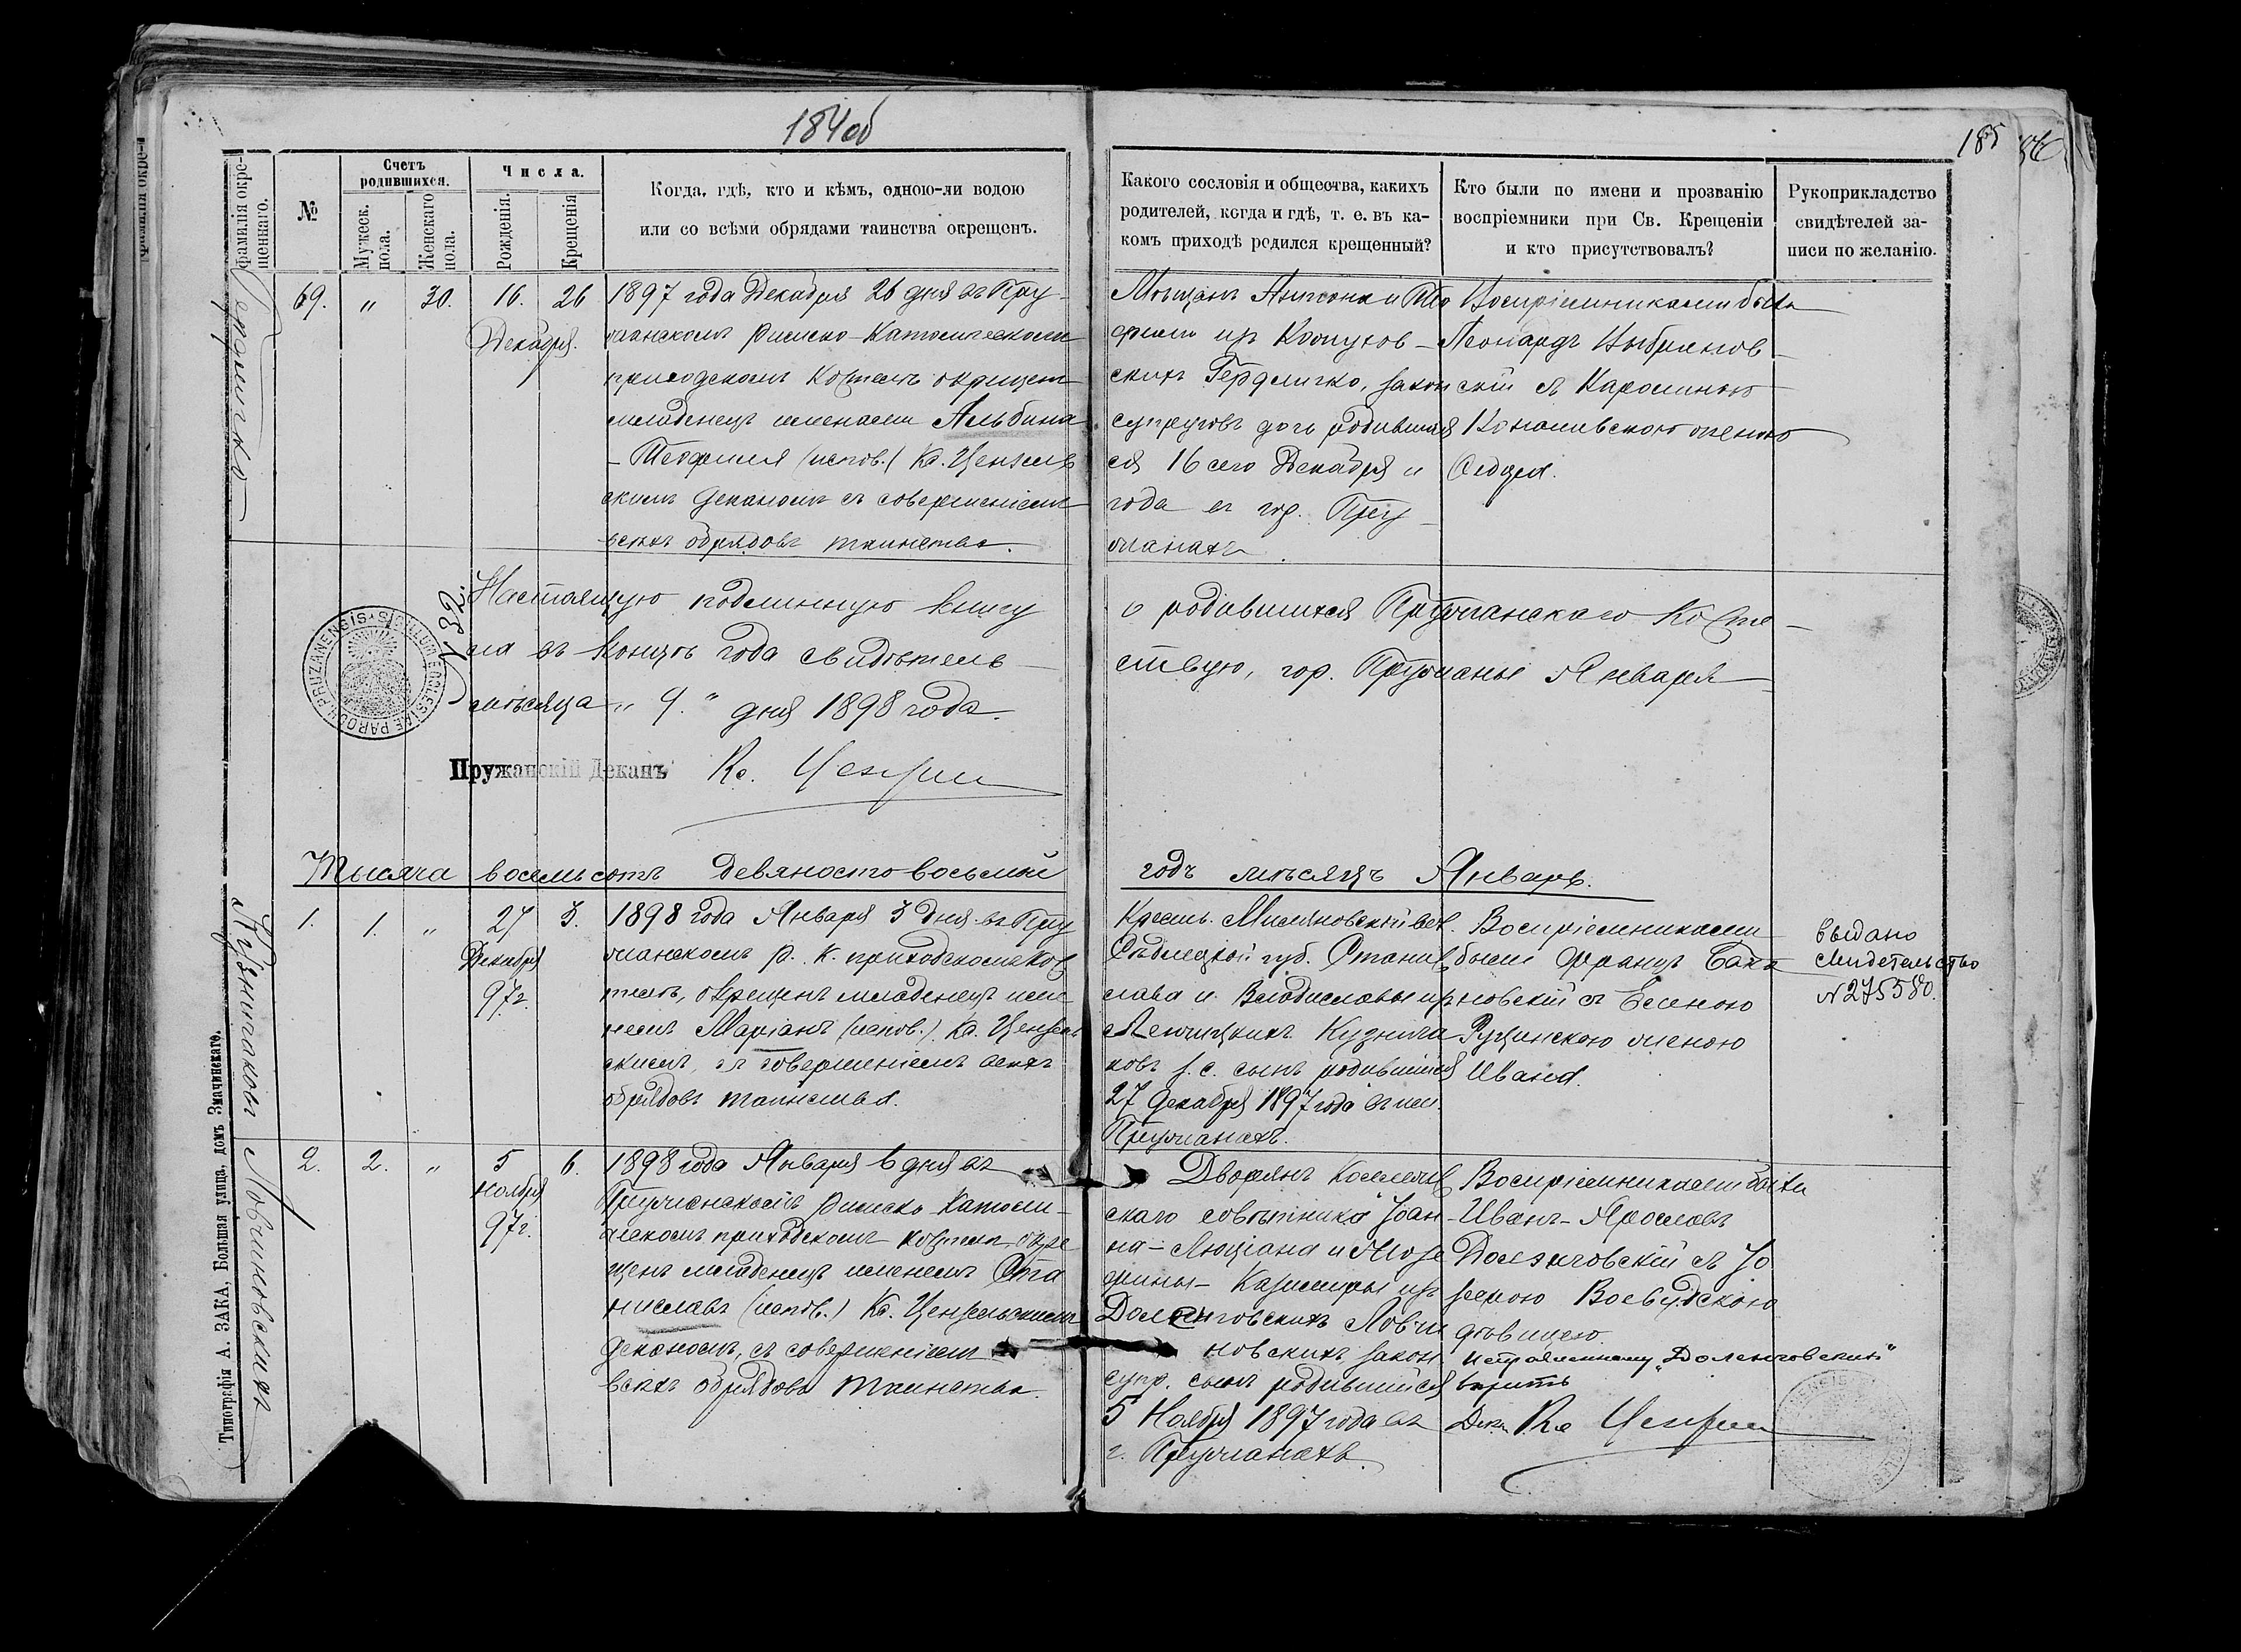 184об
185
фамилія окрещеннаго.
№
Счетъ родившихся.
Мужеск. пола.
Женскаго пола.
Числа.
Рожденія.
Крещенія
Когда, гдѣ, кто и кѣмъ, одною-ли водою
или со всѣми обрядами таинства окрещенъ.
Какого сословія и общества, какихъ
родителей, когда и гдѣ, т. е. въ ка-
комъ приходѣ родился крещенный?
Кто были по имени и прозванію
воспріемники при Св. Крещеніи
и кто присутствовалъ?
Рукоприкладство
свидѣтелей за-
писи по желанію.
69. " 30. 16. 26
Декабря.
1897 года Декабря 26 дня въ Пру-
жанскомъ Римско-Католическомъ
приходскомъ Костелѣ окрещенъ
младенецъ именами Альбина
-Теофилія (испов.) Кс. Цензель
скимъ Деканомъ съ совершеніемъ
всѣхъ обрядовъ таинства.
Мѣщанъ Антона и Тео
филіи изъ
скихъ Гердличко, закон
супруговъ дочь родившая
ся 16 сего Декабря и
года въ гор. Пру-
жанахъ.
Воспріемниками были
Леонардъ Цыбульков-
скій съ Каролиною
женою
Гердличко
№ 32.
Настоящую подлинную книгу
о родившихся Пружанскаго Косте-
ла въ концѣ года свидѣтель-
ствую, гор. Пружаны Января
мѣсяца " 9. " дня 1898 года.
SIGILLUM ECCLESIAE PAROCH PRUZANENSIS
Пружанскій Деканъ Кс.
Тысяча восемьсотъ девяносто восьмой
годъ мѣсяцъ Январь.
1. 1. " 27 3.
Декабря
97г.
1898 года Января 3 дня въ Пру
жанскомъ Р. К. приходскомъ Кос
телѣ, окрещенъ младенецъ име
немъ Маріанъ (испов.) Кс. Цензель
скимъ, съ совершеніемъ всѣхъ
обрядовъ таинства.
Крестьянъ
Сѣдлецкой губ. Станис
лава и Владиславы изъ
Ленчицкихъ Кузнича
ковъ з. с. сынъ родившійся
27 Декабря 1897 года въ им.
Пружанахъ.
Воспріемниками
были Францъ Бага
новскій съ Еленою
Рущинскою женою
Ивана.
Выдано
Свидетельство
№ 275580.
Кузничаковъ
2. 2. " 5 6.
Ноября
97г.
1898 года Января 6 дня въ
Пружанскомъ Римско Католи-
ческомъ приходскомъ костелѣ окре
щенъ младенецъ именемъ Ста
ниславъ (испов.) Кс. Цензельскимъ
Деканомъ, съ совершеніемъ
всѣхъ обрядовъ таинства.
Дворянъ Коллеж
скаго совѣтника Іоан-
на-Люціана и Юзе
фины-Казимиры изъ
Доленговскихъ Ловчи
новскихъ закон.
супр. сынъ родившійся
5 Ноября 1897 года въ
г. Пружанахъ.
Воспріемниками были
Иванъ-Ярославъ
Доленговскій съ Іо
зефою Воевудскою
дѣвицею.
Исправленному "Доленговскихъ"
вѣрить
Декан Кс.
Ловчиновскихъ
Типографія А. ЗАКА, Большая улица, домъ Змачинскаго.